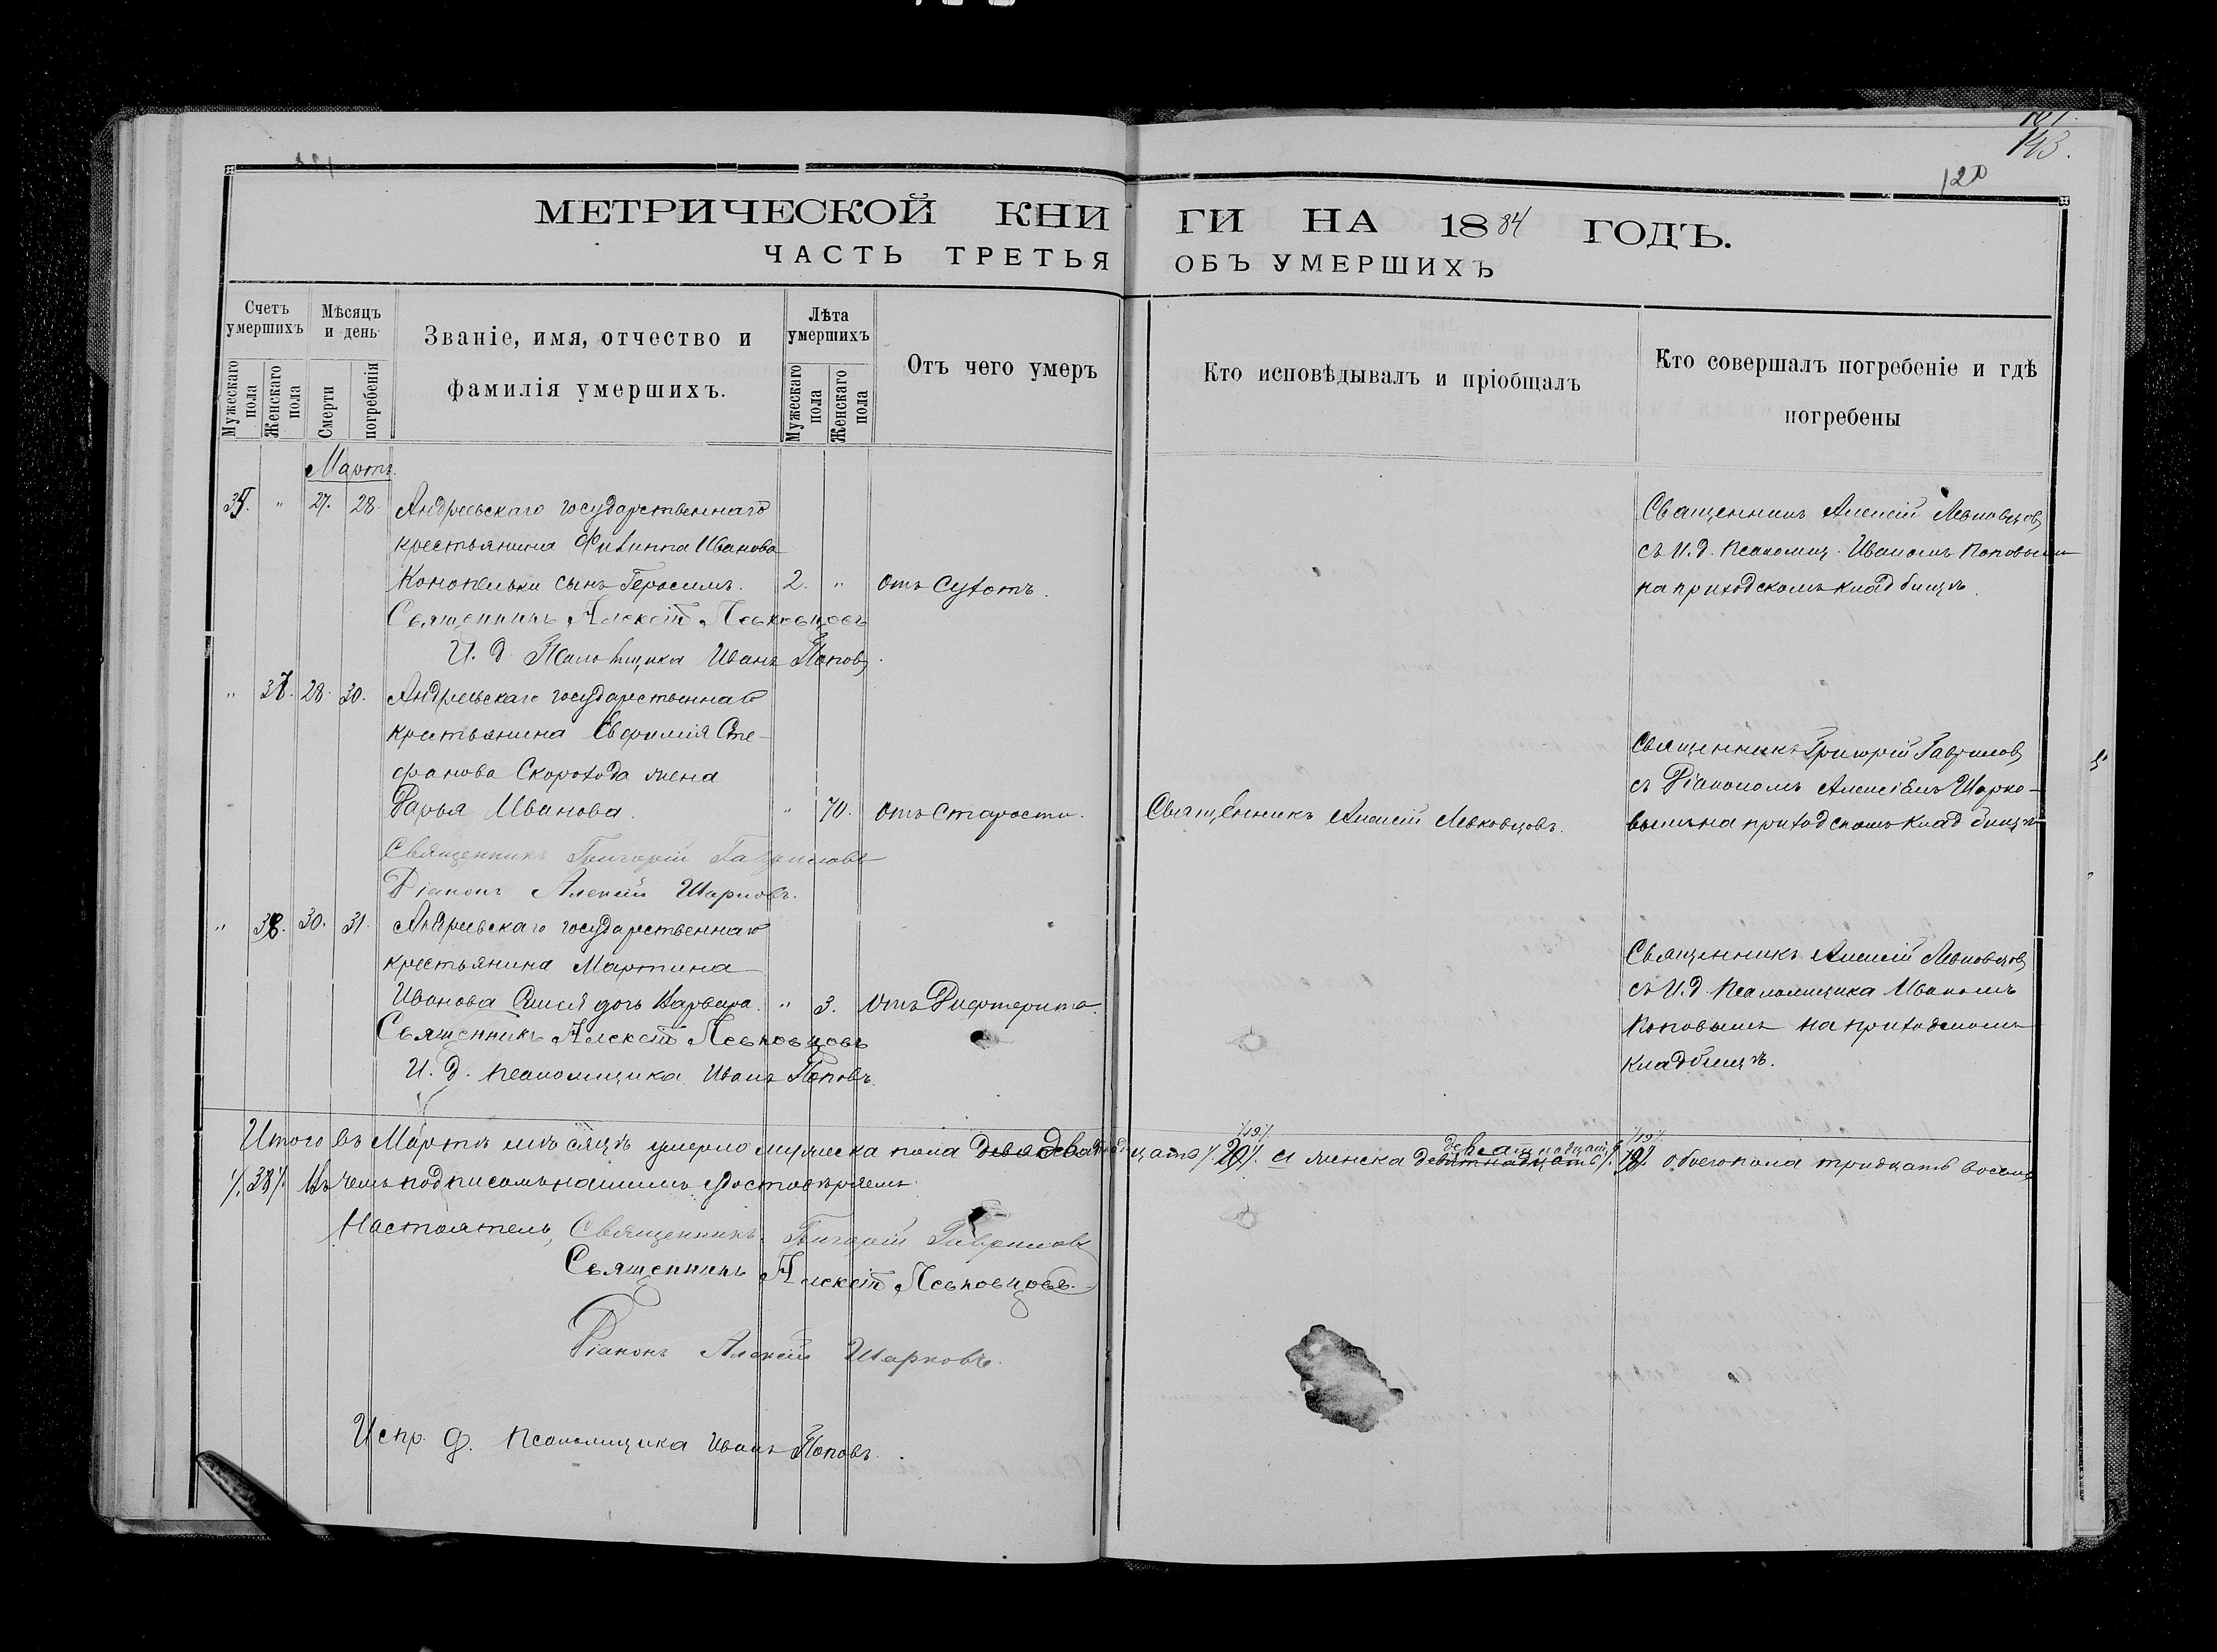 143.
120
МЕТРИЧЕСКОЙ КНИГИ НА 1884 ГОДЪ.
ЧАСТЬ ТРЕТЬЯ ОБЪ УМЕРШИХЪ
Счетъ умершихъ
Мужескаго пола
Женскаго пола
Мѣсяцъ и день
Смерти
погребенія
Званіе, имя, отчество и
фамилія умершихъ.
Лѣта умершихъ
Мужескаго пола
Женскаго пола
Отъ чего умеръ
Кто исповѣдывалъ и пріобщалъ
Кто совершалъ погребеніе и гдѣ
погребены
Мартъ.
" 27. 28. Андреевскаго государственнаго
крестьянина Филиппа Иванова
Конопельки сынъ Герасимъ. 2. " Отъ сухотъ.
Священникъ Алексій Левковцовъ
съ И. д. Псаломщ. Иваномъ Поповымъ
на приходскомъ кладбищѣ.
Священникъ Алексій Левковцовъ
И. д. Псаломщика Иванъ Поповъ.
" 28. 30. Андреевскаго государственнаго
крестьянина Евфимія Сте-
фанова Скорохода жена
Дарья Иванова. " 70. Отъ старости. Священникъ Алексій Левковцовъ.
Священникъ Григорій Гавриловъ
съ Діакономъ Алексіемъ Шарко-
вымъ на приходскомъ кладбищѣ
Священникъ Григорій Гавриловъ
Діаконъ Алексій Шарковъ.
" 38. 30. 31. Андреевскаго государственнаго
крестьянина Мартина
Иванова дочь Варвара. " 3. Отъ Дифтерита.
Священникъ Алексій Левковцовъ
съ И. д. Псаломщика Иваномъ
Поповымъ на приходскомъ
кладбищѣ.
Священникъ Алексій Левковцовъ
И. д. Псаломщика Иванъ Поповъ.
Итого въ Мартѣ мѣсяцѣ умерло мужеска пола /19/ а женска девятнадцать /19/ обоего пола тридцать восемь
/38/. Въ чемъ подписомъ нашимъ удостовѣряемъ.
Настоятель, Священникъ Григорій Гавриловъ
Священникъ Алексій Левковцовъ.
Діаконъ Алексій Шарковъ.
Испр. д. Псаломщика Иванъ Поповъ.